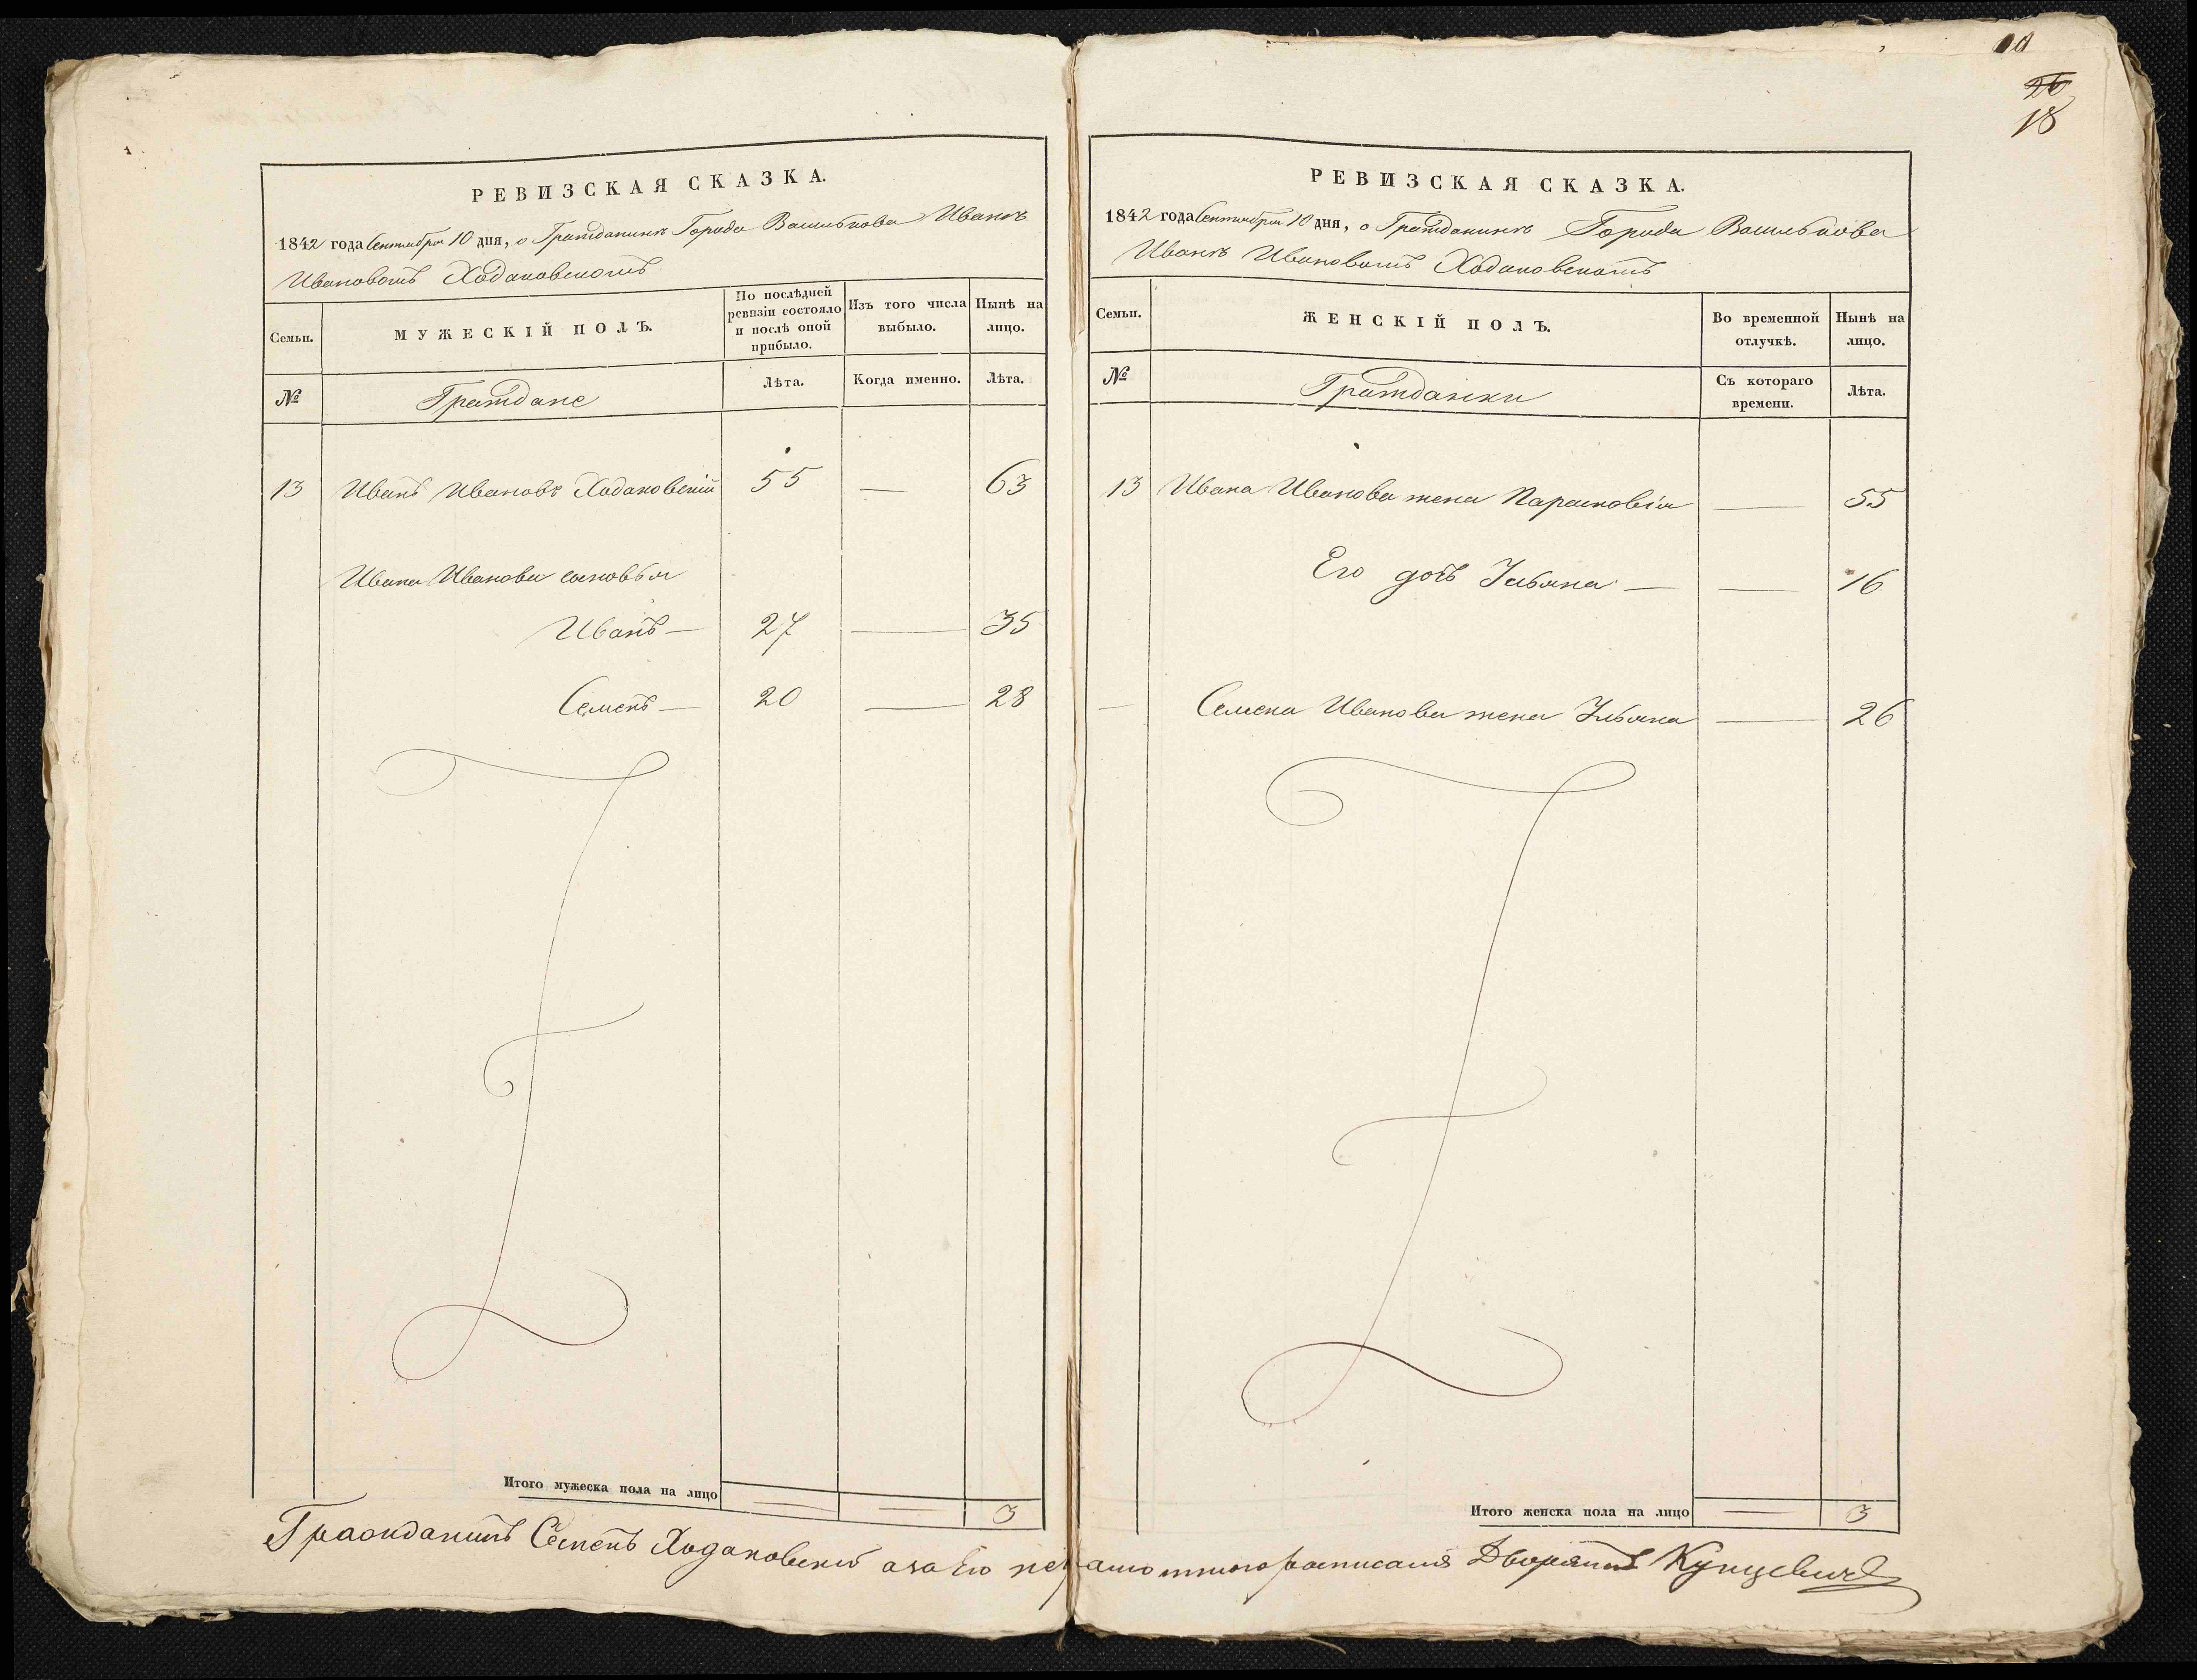 10
26
18
РЕВИЗСКАЯ СКАЗКА.
1842 года Сентября 10 дня, о Гражданинѣ Города Василькова Иванѣ
Ивановомъ Ходаковскомъ
Семьи.
МУЖЕСКІЙ ПОЛЪ.
По послѣдней ревизіи состояло и послѣ оной прибыло.
Изъ того числа выбыло.
Нынѣ на лицо.
№
Граждане
Лѣта.
Когда именно.
Лѣта.
13 Иванъ Ивановъ Ходаковскій 55 — 63
Ивана Иванова сыновья
Иванъ — 27 — 35
Семенъ — 20 — 28
Итого мужеска пола на лицо — — 3
РЕВИЗСКАЯ СКАЗКА.
1842 года Сентября 10 дня, о Гражданинѣ Города Василькова
Иванѣ Ивановомъ Ходаковскомъ
Семьи.
ЖЕНСКІЙ ПОЛЪ.
Во временной отлучкѣ.
Нынѣ на лицо.
№
Гражданки
Съ котораго времени.
Лѣта.
13 Ивана Иванова жена Парасковія — 55
Его дочь Ульяна — — 16
— Семена Иванова жена Ульяна — 26
Итого женска пола на лицо — 3
Гражданинъ Семенъ Ходаковскій а за Его неграмотного росписался Дворянинъ Купцевичъ